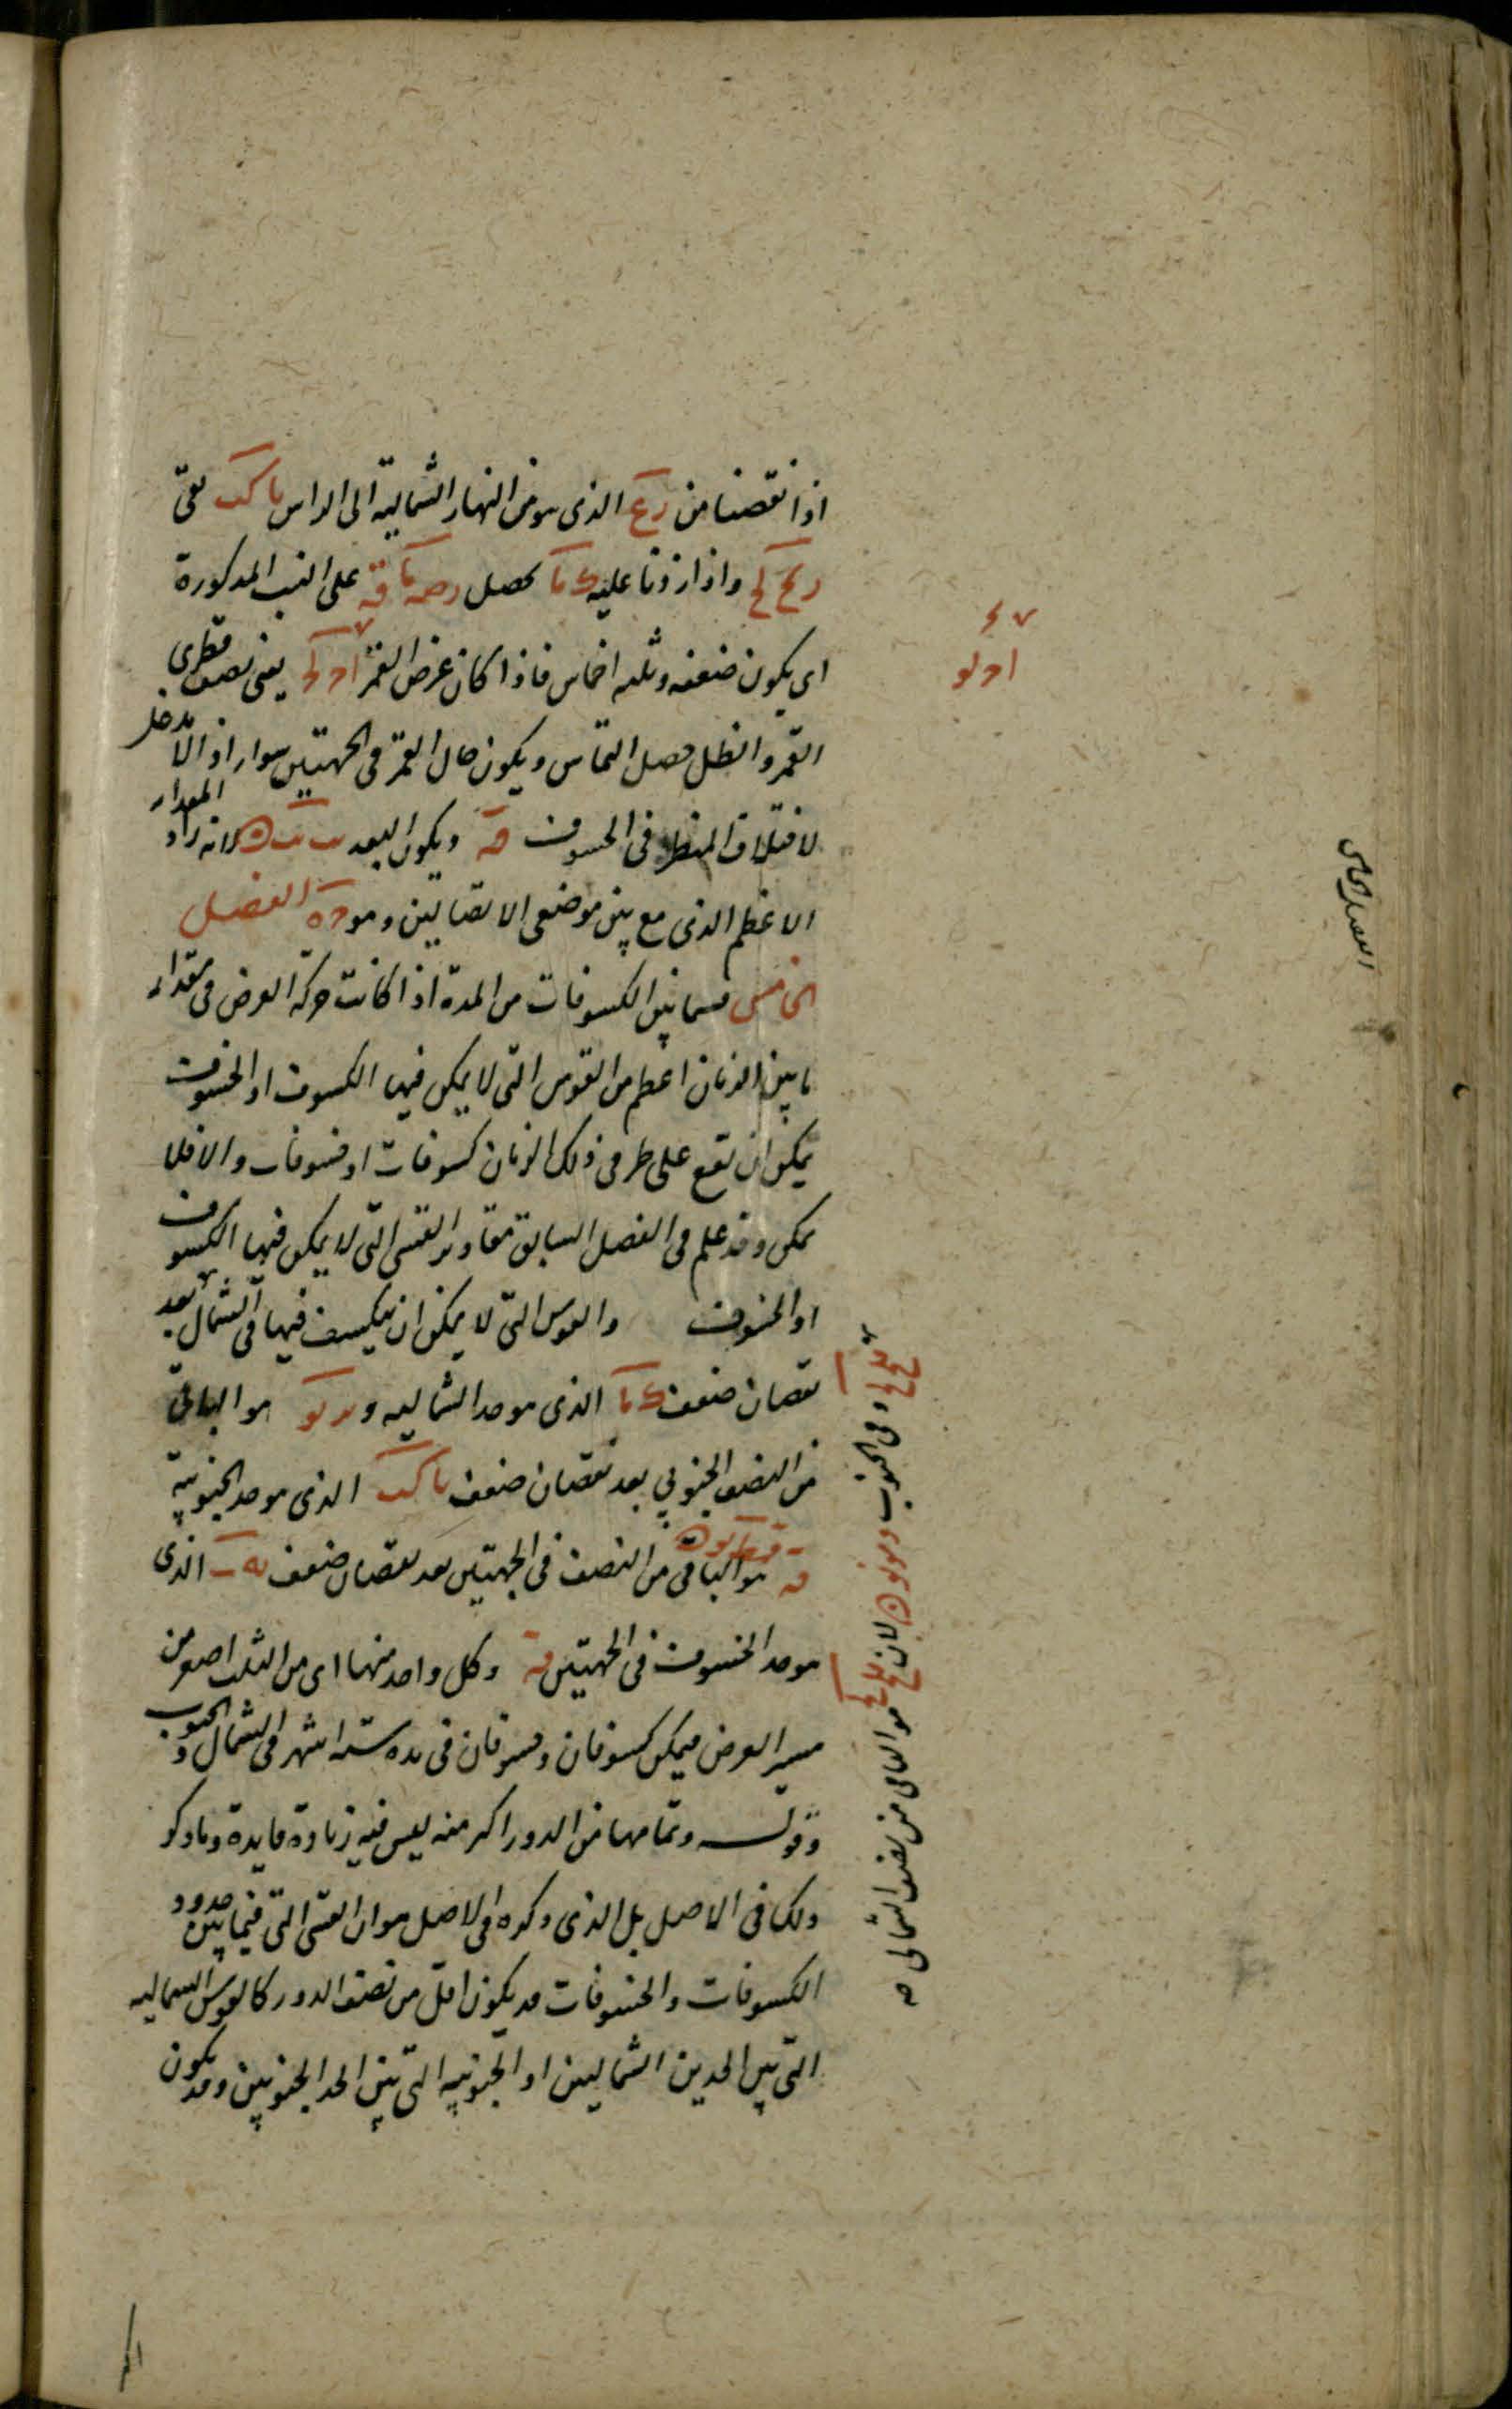 اذا نقصنا من رع الذى هو من النهار الشمالية الى الراس ما كب بقى
رمح لح واذا زدنا عليه ك ما يحصل على النسب المذكورة
اى يكون ضعفه وثلثه اخماس فاذا كان عرض القمر ا د لو يعنى نصف قطرى
القمر والظل حصل التماس ويكون حال القمر فى الجهتين سواء اذ لا مدخل
لاختلاف المنظر فى الخسوف ويكون البعد لانه زاد المقدار
الاعظم الذى مع بين موضعى الاتصالين وهو الفصل
الخامس فيما بين الكسوفات من المدة اذا كانت حركة العرض فى مقدار
ما بين الزمان اعظم من القوس التى لا يمكن فيها الكسوف او الخسوف
يمكن ان تقع على طرفى ذلك الزمان كسوفات او خسوفات والا فلا
يمكن وقد علم فى الفصل السابق مقادير القسى التى لا يمكن فيها الكسوف
او الخسوف والقوس التى لا يمكن ان ينكسف فيها فى الشمال بعد
نقصان ضعف ك ما الذى هو حد الشمالية هو الباقى
من النصف الجنوبى بعد نقصان ضعف ما كب الذى هو حد الجنوبية
هو الباقى من النصف فى الجهتين بعد نقصان ضعف الذى
هو حد الخسوف فى الجهتين وكل واحد منها اى من الثلث اصغر من
مسير العرض فيمكن كسوفان وخسوفان فى مدة ستة اشهر فى الشمال والجنوب
وقوله وتمامها من الدور اكبر منه ليس فيه زيادة فايدة وما ذكر
ذلك فى الاصل بل الذى ذكره فى الاصل هو ان القسى التى فيما بين حدود
الكسوفات والخسوفات قد يكون اقل من نصف الدور كالقوس الشمالية
التى بين الحدين الشماليين او الجنوبية التى بين الحد الجنوبيين وقد يكون
ا د لو
الفصل الخامس
وفى الجنوب لان هو الباقى من نصف الشمالى